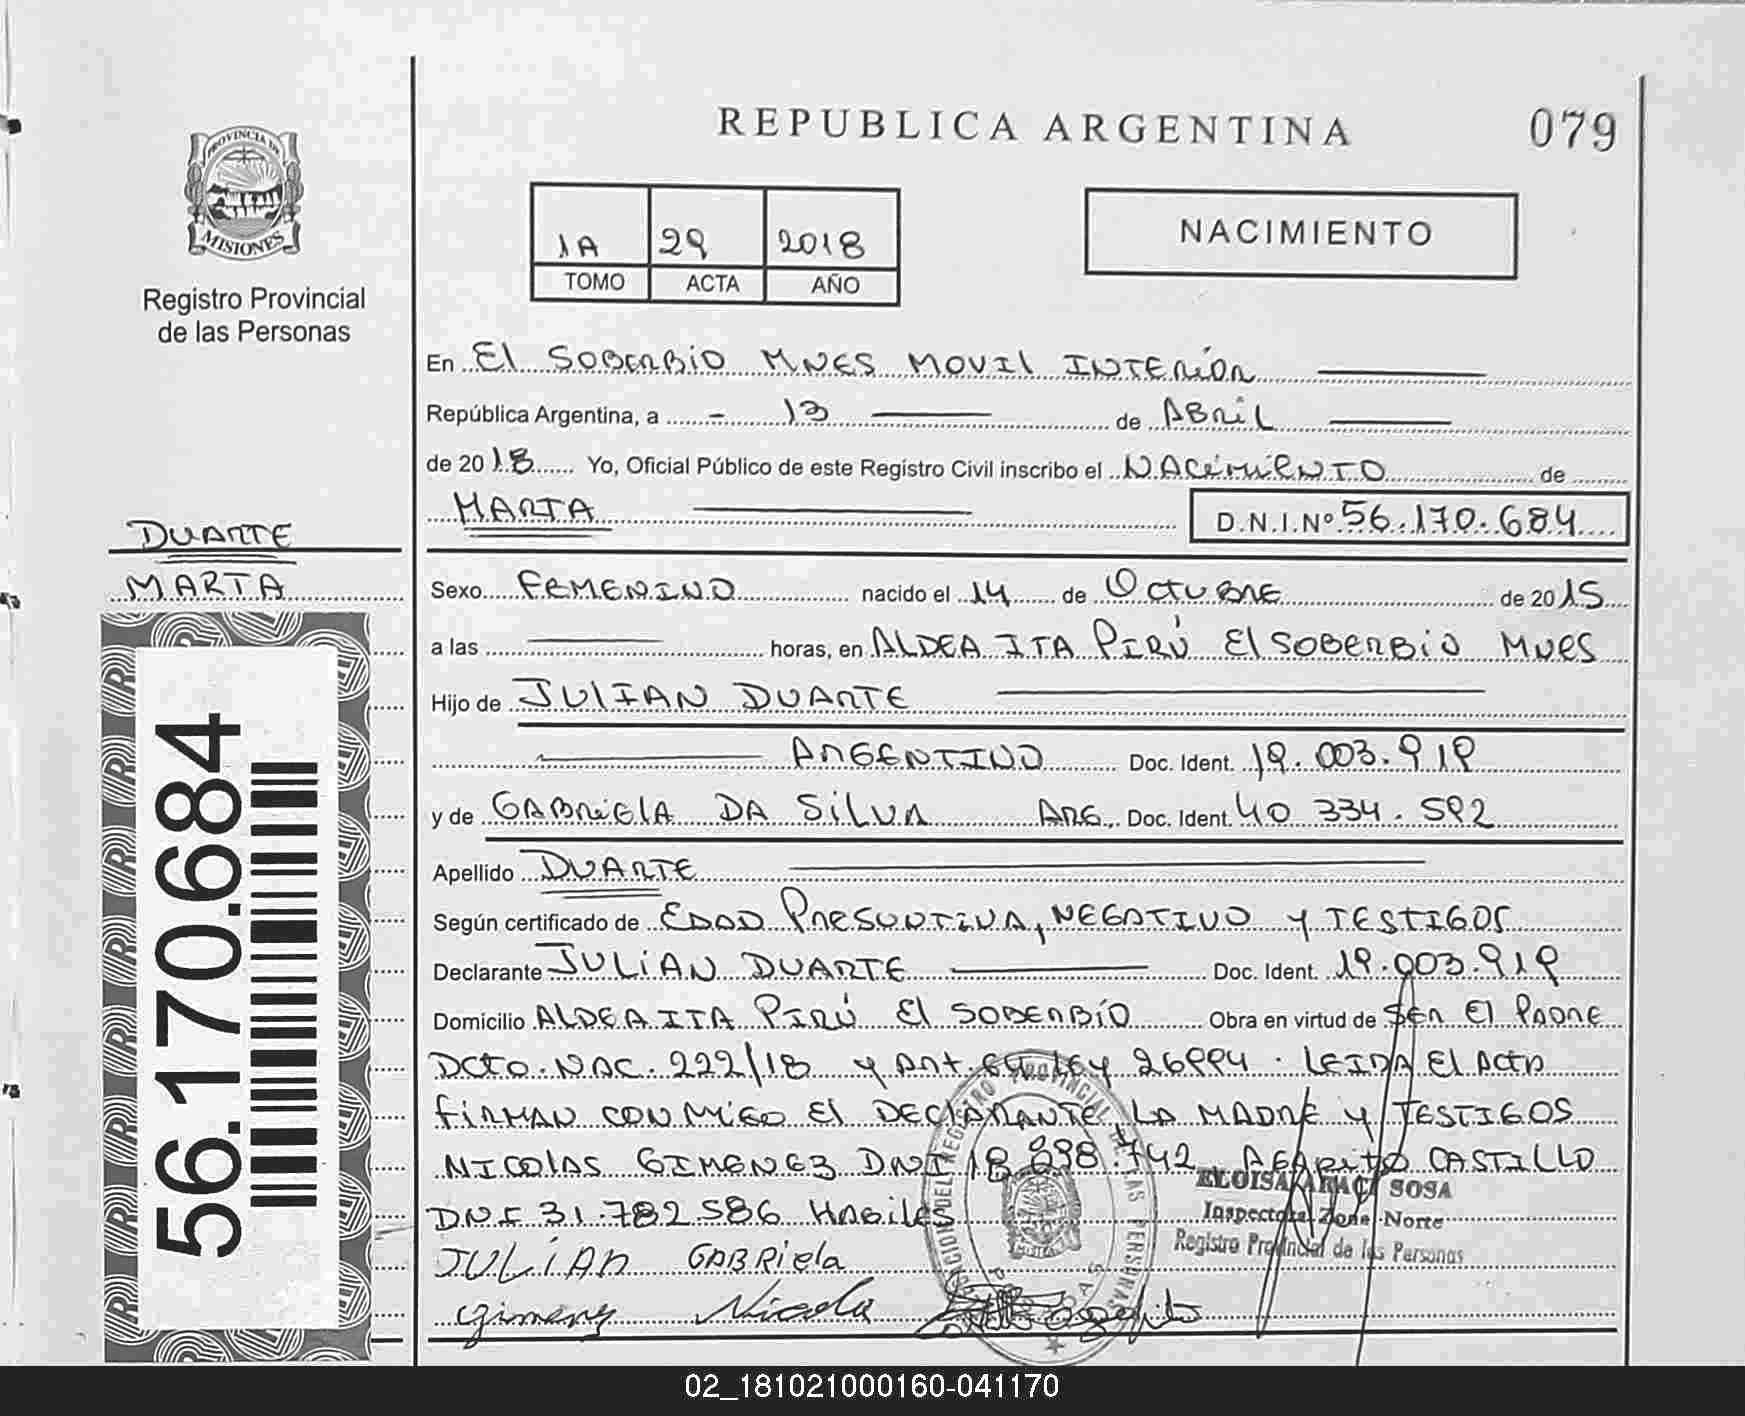 REPUBLICA ARGENTINA
079
PROVINCIA DE
MISIONES
Registro Provincial
de las Personas
1A 29 2018
TOMO ACTA AÑO
NACIMIENTO
En El SOBERBIO MNES MOVIL INTERIOR
República Argentina, a - 13 de ABRIL
de 2018 Yo, Oficial Público de este Registro Civil inscribo el NACIMIENTO de
MARTA D.N.I.Nº 56.170.684
DUARTE
MARTA
56.170.684
Sexo FEMENINO nacido el 14 de OCTUBRE de 2015
a las horas, en ALDEA ITA PIRÚ El SOBERBIO MNES
Hijo de JULIAN DUARTE
ARGENTINO Doc. Ident. 19.003.919
y de GABRIELA DA SILVA ARG. Doc. Ident. 40 334.592
Apellido DUARTE
Según certificado de EDAD PRESUNTIVA, NEGATIVO y TESTIGOS
Declarante JULIAN DUARTE Doc. Ident. 19.003.919
Domicilio ALDEA ITA PIRÚ El SOBERBÍO Obra en virtud de SER El PADRE
DCTO. NAC. 222/18 y Art. LEY 26994. LEIDA El ACTA
FIRMAN CONMIGO El DECLARANTE, LA MADRE y TESTIGOS
NICOLAS GIMENEZ DNI 18 898.742 AGAPITO CASTILLO
DNI 31.782 586 HABILES
ELOISA ARACI SOSA
Inspectora Zona Norte
Registro Provincial de las Personas
JULIAN GABRiela
Gimenez Nicola Agapito
02_181021000160-041170